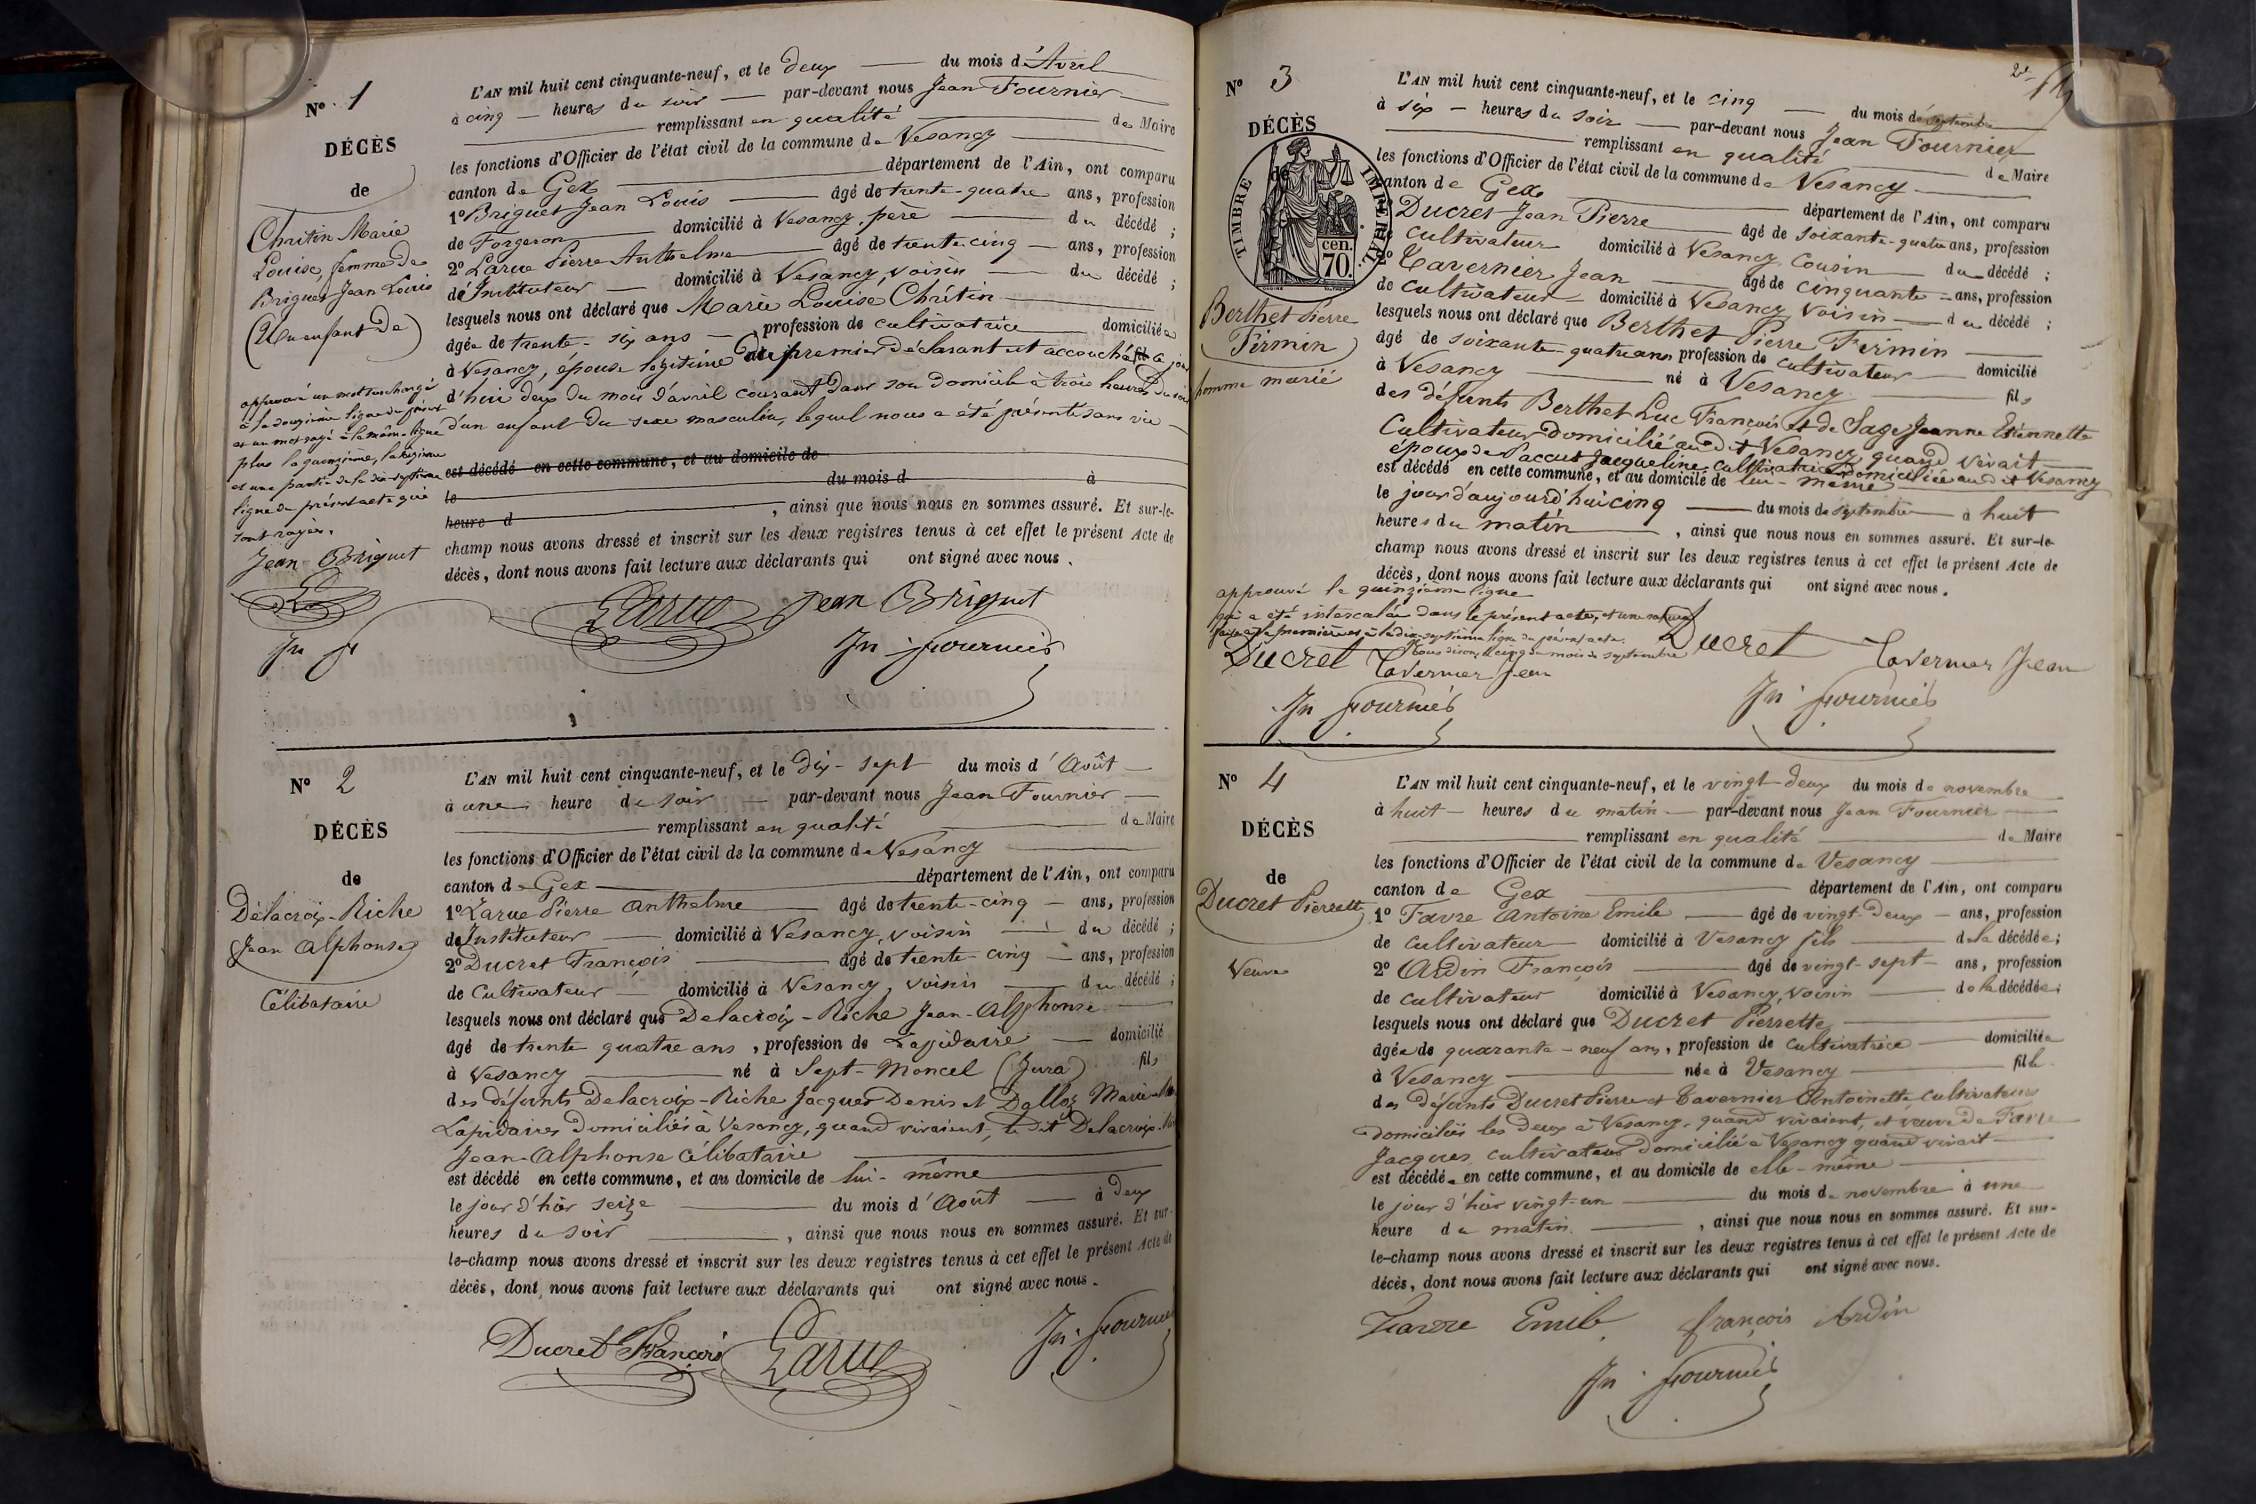 N° 1
DÉCÈS
de
Chritin Marie
Louise, femme de
Briguet Jean Louis
(Un enfant de)
approuvé un mot surchargé
à la douzième ligne du présent
et un mot rayé à la même ligne
plus la quinzième, la seizième
et une partie de la dix-septième
ligne du présent acte qui
sont rayés.
Jean Briguet
L'AN mil huit cent cinquante-neuf, et le deux du mois d'Avril
à cinq heures du soir par-devant nous Jean Fournier
remplissant en qualité de Maire
les fonctions d'Officier de l'état civil de la commune de Vesancy
canton de Gex département de l'Ain, ont comparu
1° Briguet Jean Louis âgé de trente-quatre ans, profession
de Forgeron domicilié à Vesancy, père du décédé ;
2° Larue Pierre Anthelme âgé de trente cinq ans, profession
d'Instituteur domicilié à Vesancy, voisin du décédé ;
lesquels nous ont déclaré que Marie Louise Chritin
âgée de trente-six ans, profession de cultivatrice domiciliée
à Vesancy, épouse légitime du premier déclarant est accouchée ce jour
d'hui deux du mois d'avril courant dans son domicile à trois heures du soir
d'un enfant du sexe masculin, lequel nous a été présenté sans vie
est décédé en cette commune, et au domicile de
le du mois d à
heure d , ainsi que nous nous en sommes assuré. Et sur-le-
champ nous avons dressé et inscrit sur les deux registres tenus à cet effet le présent Acte de
décès, dont nous avons fait lecture aux déclarants qui ont signé avec nous.
Larue Jean Briguet
Jn Fournier
N° 2
DÉCÈS
de
Delacroix-Riche
Jean Alphonse
Célibataire
L'AN mil huit cent cinquante-neuf, et le dix-sept du mois d'Août
à une heure de soir par-devant nous Jean Fournier
remplissant en qualité de Maire
les fonctions d'Officier de l'état civil de la commune de Vesancy
canton de Gex département de l'Ain, ont comparu
1° Larue Pierre Anthelme âgé de trente-cinq ans, profession
d'Instituteur domicilié à Vesancy, voisin du décédé ;
2° Ducret François âgé de trente-cinq ans, profession
de Cultivateur domicilié à Vesancy, voisin du décédé ;
lesquels nous ont déclaré que Delacroix-Riche Jean-Alphonse
âgé de trente quatre ans, profession de Lapidaire domicilié
à Vesancy né à Sept-Moncel (Jura) fils
des défunts Delacroix-Riche Jacques Denis et Dalloz Marie
Lapidaires domiciliés à Vesancy, quand vivaient, le dit Delacroix
Jean-Alphonse Célibataire
est décédé en cette commune, et au domicile de lui-même
le jour d'hier seize du mois d'Août à deux
heures du soir , ainsi que nous nous en sommes assuré. Et sur-
le-champ nous avons dressé et inscrit sur les deux registres tenus à cet effet le présent Acte de
décès, dont nous avons fait lecture aux déclarants qui ont signé avec nous.
Ducret François Larue Jn Fournier
2e
N° 3
DÉCÈS
de
TIMBRE IMPÉRIAL
cen.
70.
Berthet Pierre
Firmin
homme marié
L'AN mil huit cent cinquante-neuf, et le cinq du mois de septembre
à six heures du soir par-devant nous Jean Fournier
remplissant en qualité de Maire
les fonctions d'Officier de l'état civil de la commune de Vesancy
canton de Gex département de l'Ain, ont comparu
Ducret Jean Pierre âgé de soixante-quatre ans, profession
cultivateur domicilié à Vesancy Cousin du décédé ;
2° Tavernier Jean âgé de cinquante ans, profession
de cultivateur domicilié à Vesancy, voisin du décédé ;
lesquels nous ont déclaré que Berthet Pierre Firmin
âgé de soixante-quatre ans profession de cultivateur domicilié
à Vesancy né à Vesancy fils
des défunts Berthet Luc François et de Sage Jeanne Etiennette
Cultivateurs Domicilié audit Vesancy quand vivait
époux de Paccut Jacqueline cultivatrice domiciliée audit Vesancy
est décédé en cette commune, et au domicile de lui-même
le jour d'aujourd'hui cinq du mois de septembre à huit
heures du matin , ainsi que nous nous en sommes assuré. Et sur-le-
champ nous avons dressé et inscrit sur les deux registres tenus à cet effet le présent Acte de
décès, dont nous avons fait lecture aux déclarants qui ont signé avec nous.
approuvé la quinzième ligne
qui a été intercalée dans le présent acte, et une
à la première et à la dix-septième ligne du présent acte.
Nous disons le cinq du mois de septembre
Ducret Tavernier Jean
Jn Fournier
Ducret Tavernier Jean
Jn Fournier
N° 4
DÉCÈS
de
Ducret Pierrette
Veuve
L'AN mil huit cent cinquante-neuf, et le vingt-deux du mois de novembre
à huit heures du matin par-devant nous Jean Fournier
remplissant en qualité de Maire
les fonctions d'Officier de l'état civil de la commune de Vesancy
canton de Gex département de l'Ain, ont comparu
1° Favre Antoine Emile âgé de vingt-deux ans, profession
de cultivateur domicilié à Vesancy fils de la décédée ;
2° Ardin François âgé de vingt-sept ans, profession
de cultivateur domicilié à Vesancy, voisin de la décédée ;
lesquels nous ont déclaré que Ducret Pierrette
âgée de quarante-neuf ans, profession de cultivatrice domiciliée
à Vesancy née à Vesancy fille
des défunts Ducret Pierre et Tavernier Antoinette cultivateurs
domiciliés les deux à Vesancy, quand vivaient, et veuve de Favre
Jacques, cultivateur domicilié à Vesancy quand vivait
est décédée en cette commune, et au domicile de elle-même
le jour d'hier vingt-un du mois de novembre à une
heure du matin , ainsi que nous nous en sommes assuré. Et sur-
le-champ nous avons dressé et inscrit sur les deux registres tenus à cet effet le présent Acte de
décès, dont nous avons fait lecture aux déclarants qui ont signé avec nous.
Favre Emile François Ardin
Jn Fournier